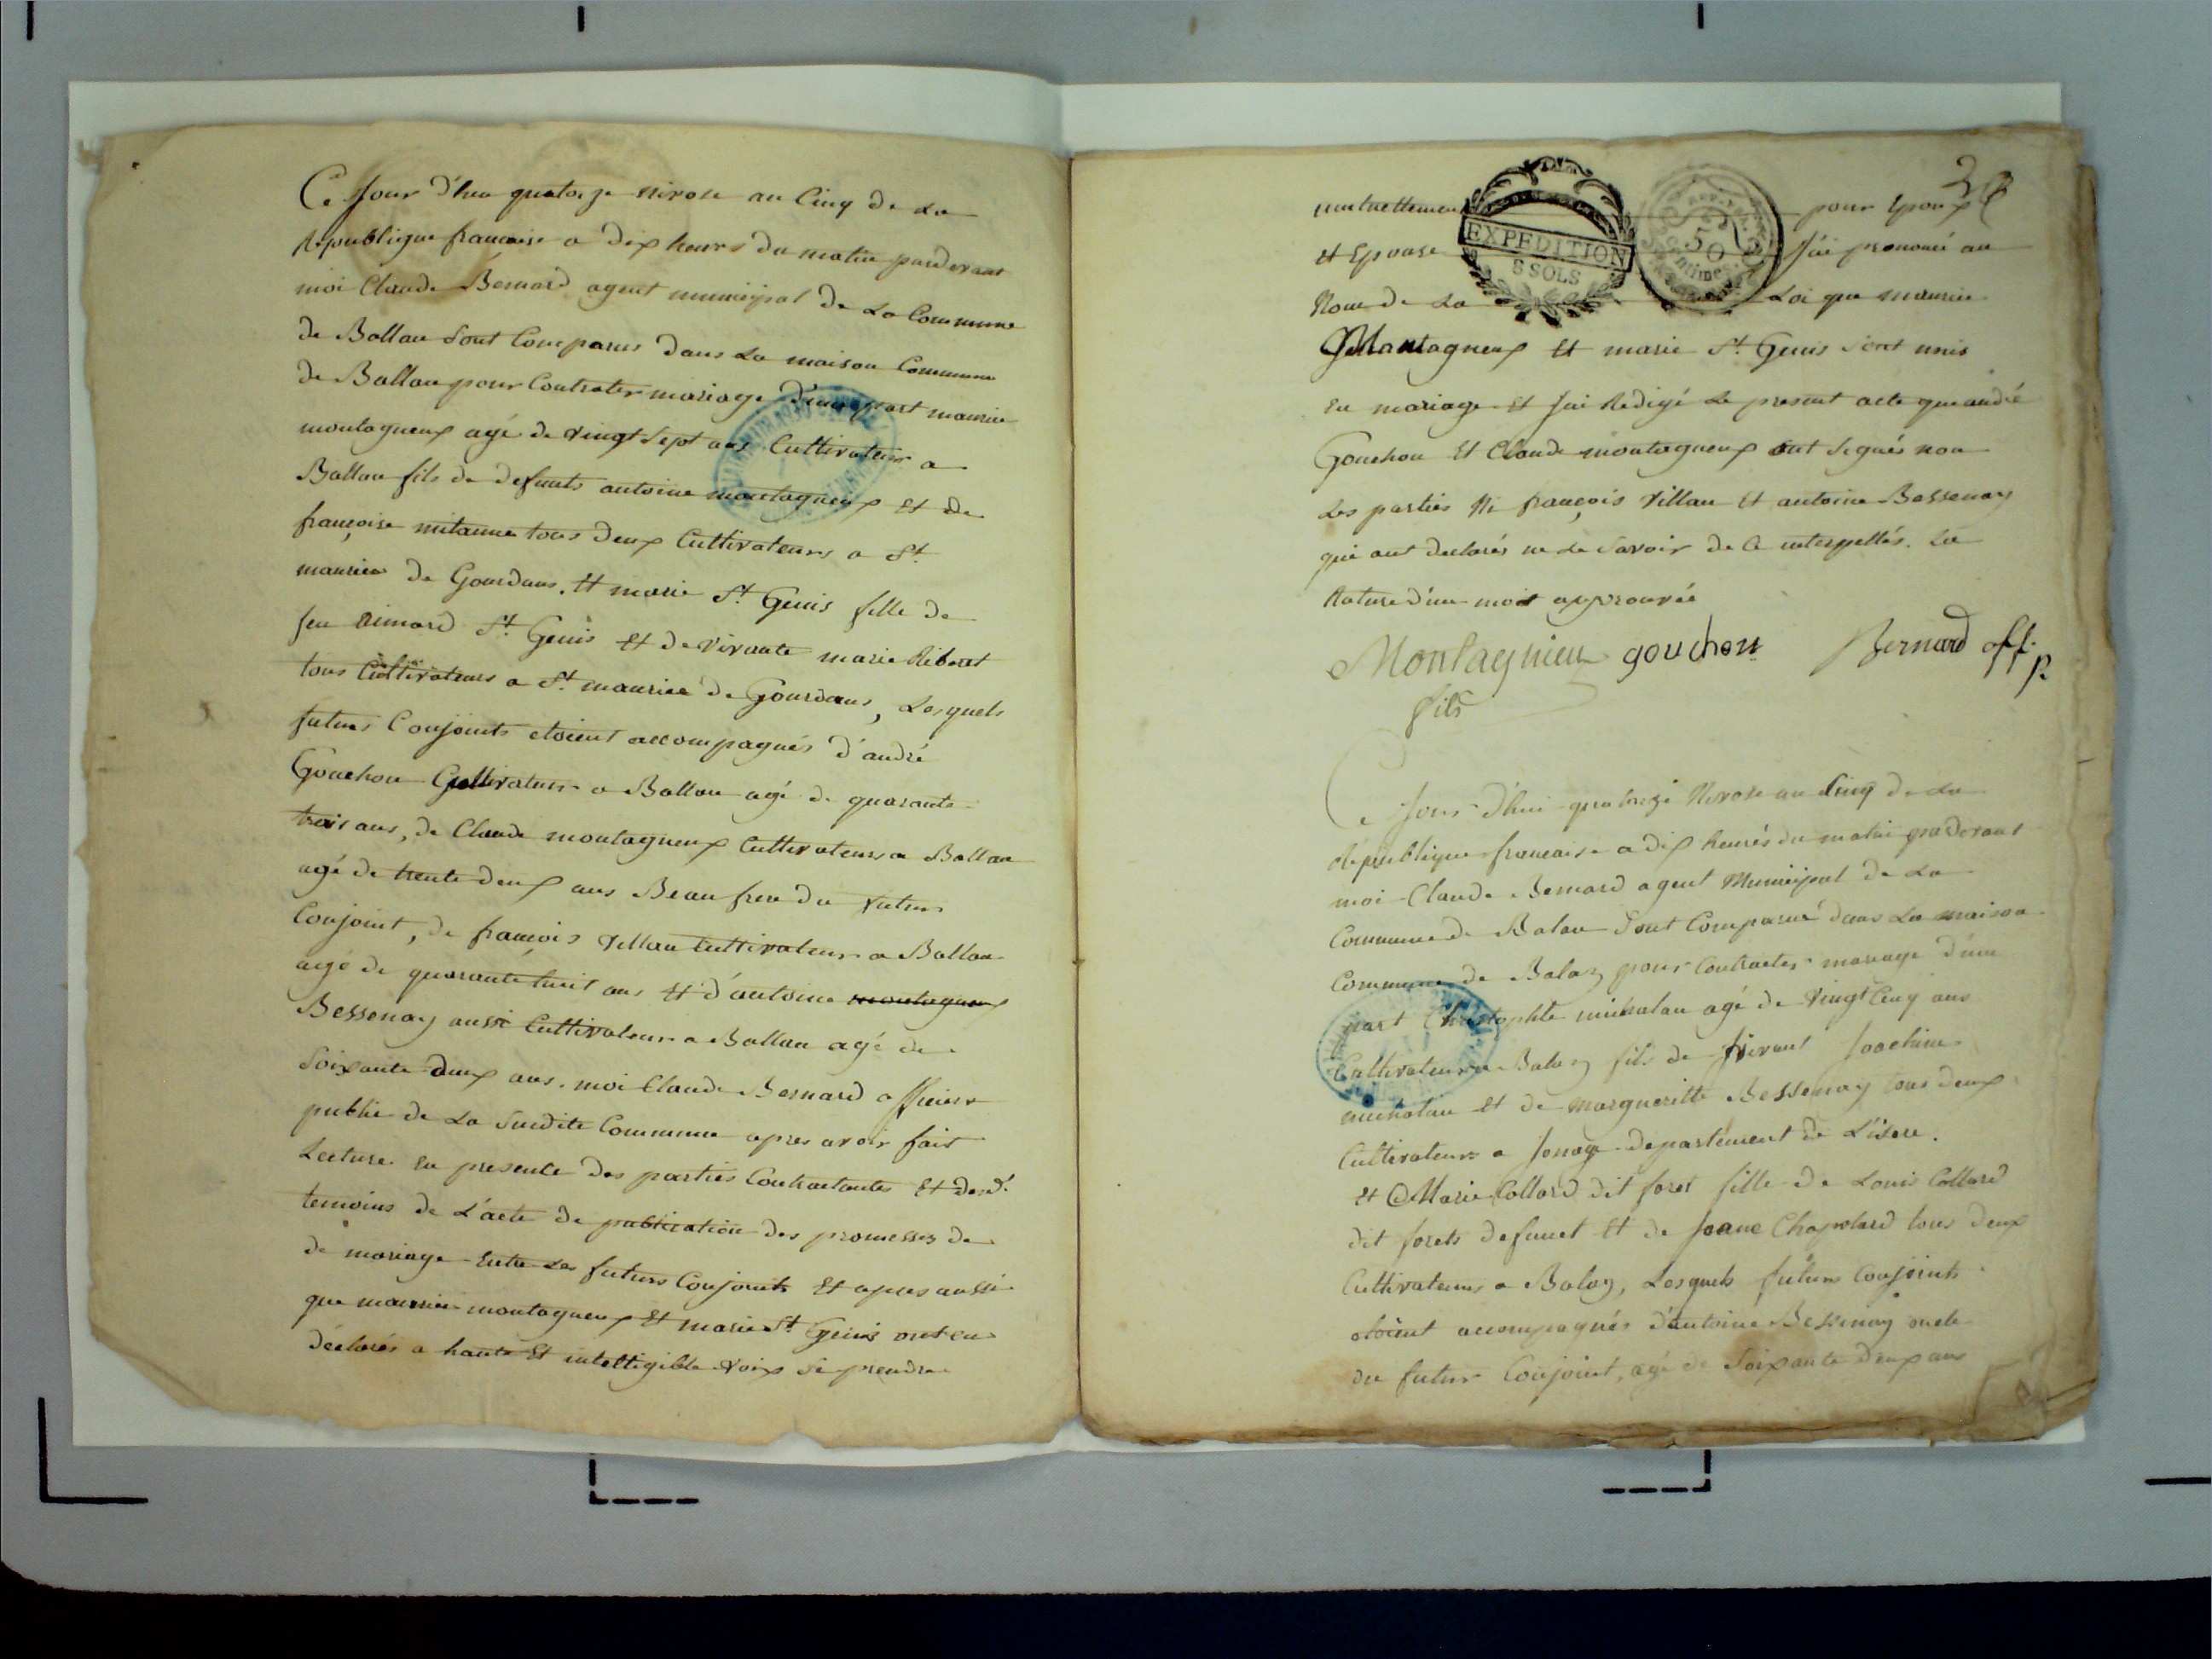 Ce Jour d'hui quatorze nivose an Cinq de La
Republique francaise a dix heures du matin pardevant
moi Claude Bernard agent municipal de La Commune
de Ballan sont Comparus dans La maison Commune
de Ballan pour Contracter mariage d'une part maurice
montagneux agé de vingt sept ans Cultivateur a
Ballan fils de defunts antoine montagneux et de
françoise mitanne tous deux Cultivateurs a St.
maurice de Gourdans. Et marie St. Genis fille de
feu St. Genis et de vivante marie
tous Cultivateurs a St. maurice de Gourdans, Lesquels
futurs Conjoints etoient accompagnés d'andré
Gouchon Cultivateur a Ballan agé de quarante
trois ans, de Claude montagneux Cultivateur a Ballan
agé de trente deux ans Beau frere du futur
Conjoint, de françois villan Cultivateur a Ballan
agé de quarante huit ans et d'antoine montagneux
Bessenay aussi Cultivateur a Ballan agé de
Soixante deux ans. moi Claude Bernard officier
public de La Susdite Commune apres avoir fait
Lecture en presence des parties Contractantes et desd.
temoins de L'acte de publication des promesses de
de mariage Entre Les futurs Conjoints et apres aussi
que maurice montagneux et marie St. Genis ont eu
déclarés a haute et intelligible voix se prendre
mutuellement pour Epoux
EXPEDITION
8 SOLS
50
Centimes
et Epouse J'ai prononcé au
Nom de La Loi que maurice
Montagneux et marie St. Genis sont unis
en mariage et J'ai Redigé Le present acte que andré
Gouchon et Claude montagneux ont signés non
Les parties Ni françois villan et antoine Bessenay
qui ont declarés ne Le Savoir de Ce interpellés. La
Rature d'un mot approuvée
Montagnieu gouchon Bernard off. p.
fils
Ce Jour d'hui quatorze Nivose an Cinq de La
République francaise a dix heures du matin pardevant
moi Claude Bernard agent Municipal de La
Commune de Balan Sont Comparus dans La maison
Commune de Balan pour Contracter mariage d'une
part Christophle michalan agé de vingt Cinq ans
Cultivateur a Balan fils de vivant Joachim
michalan et de margueritte Bessenay tous deux
Cultivateurs a Jonage departement de L'isere.
et Marie Collard dit foret fille de Louis Collard
dit forets defunct et de Jeane Chapolard tous deux
Cultivateurs a Balan, Lesquels futurs Conjoints
etoient accompagnés d'antoine Bessenay oncle
du futur Conjoint, agé de Soixante deux ans